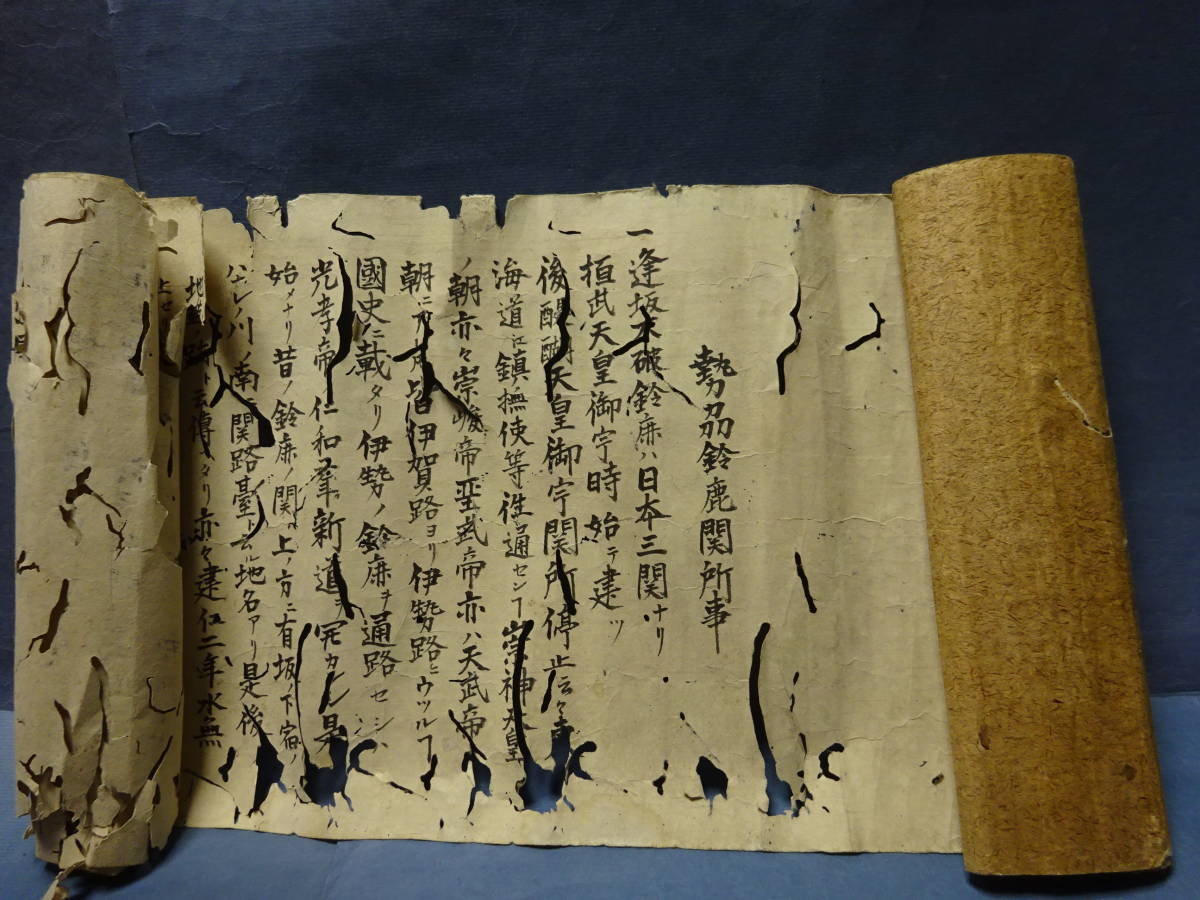 勢刕鈴鹿関所事
一逢坂不破鈴鹿ハ日本三関ナリ
桓武天皇御宇時始テ建ツ
後醍醐天皇御宇関所停止云々
海道江鎮撫使等往通センヿ崇神天皇
ノ朝亦々崇峻帝聖武帝亦ハ天武帝
朝ニ皆伊賀路ヨリ伊勢路ニウツルヿ
國史ニ載タリ伊勢ノ鈴鹿ヲ通路セシハ
光孝帝仁和新道ヲ開カレ是
始メナリ昔ノ鈴鹿ノ関ハ上ノ方ニ有坂ノ下宿ノ
ノ川ノ南ニ関路臺ト云ル地名アリ是後
地蔵ト云傳タリ亦々建仁二年水無